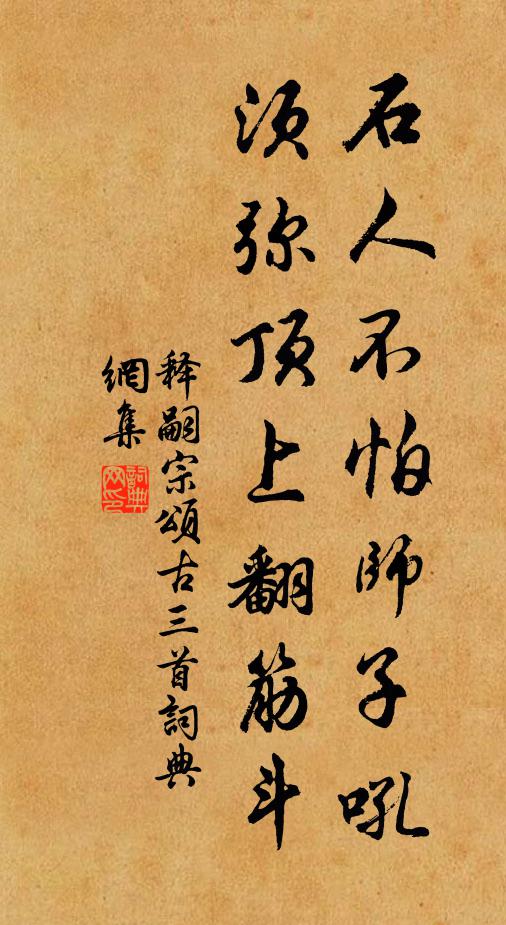 石人不怕師子吼
须弥顶上翻筋斗
释嗣宗頌古三首詞典
網集
詞典
网印